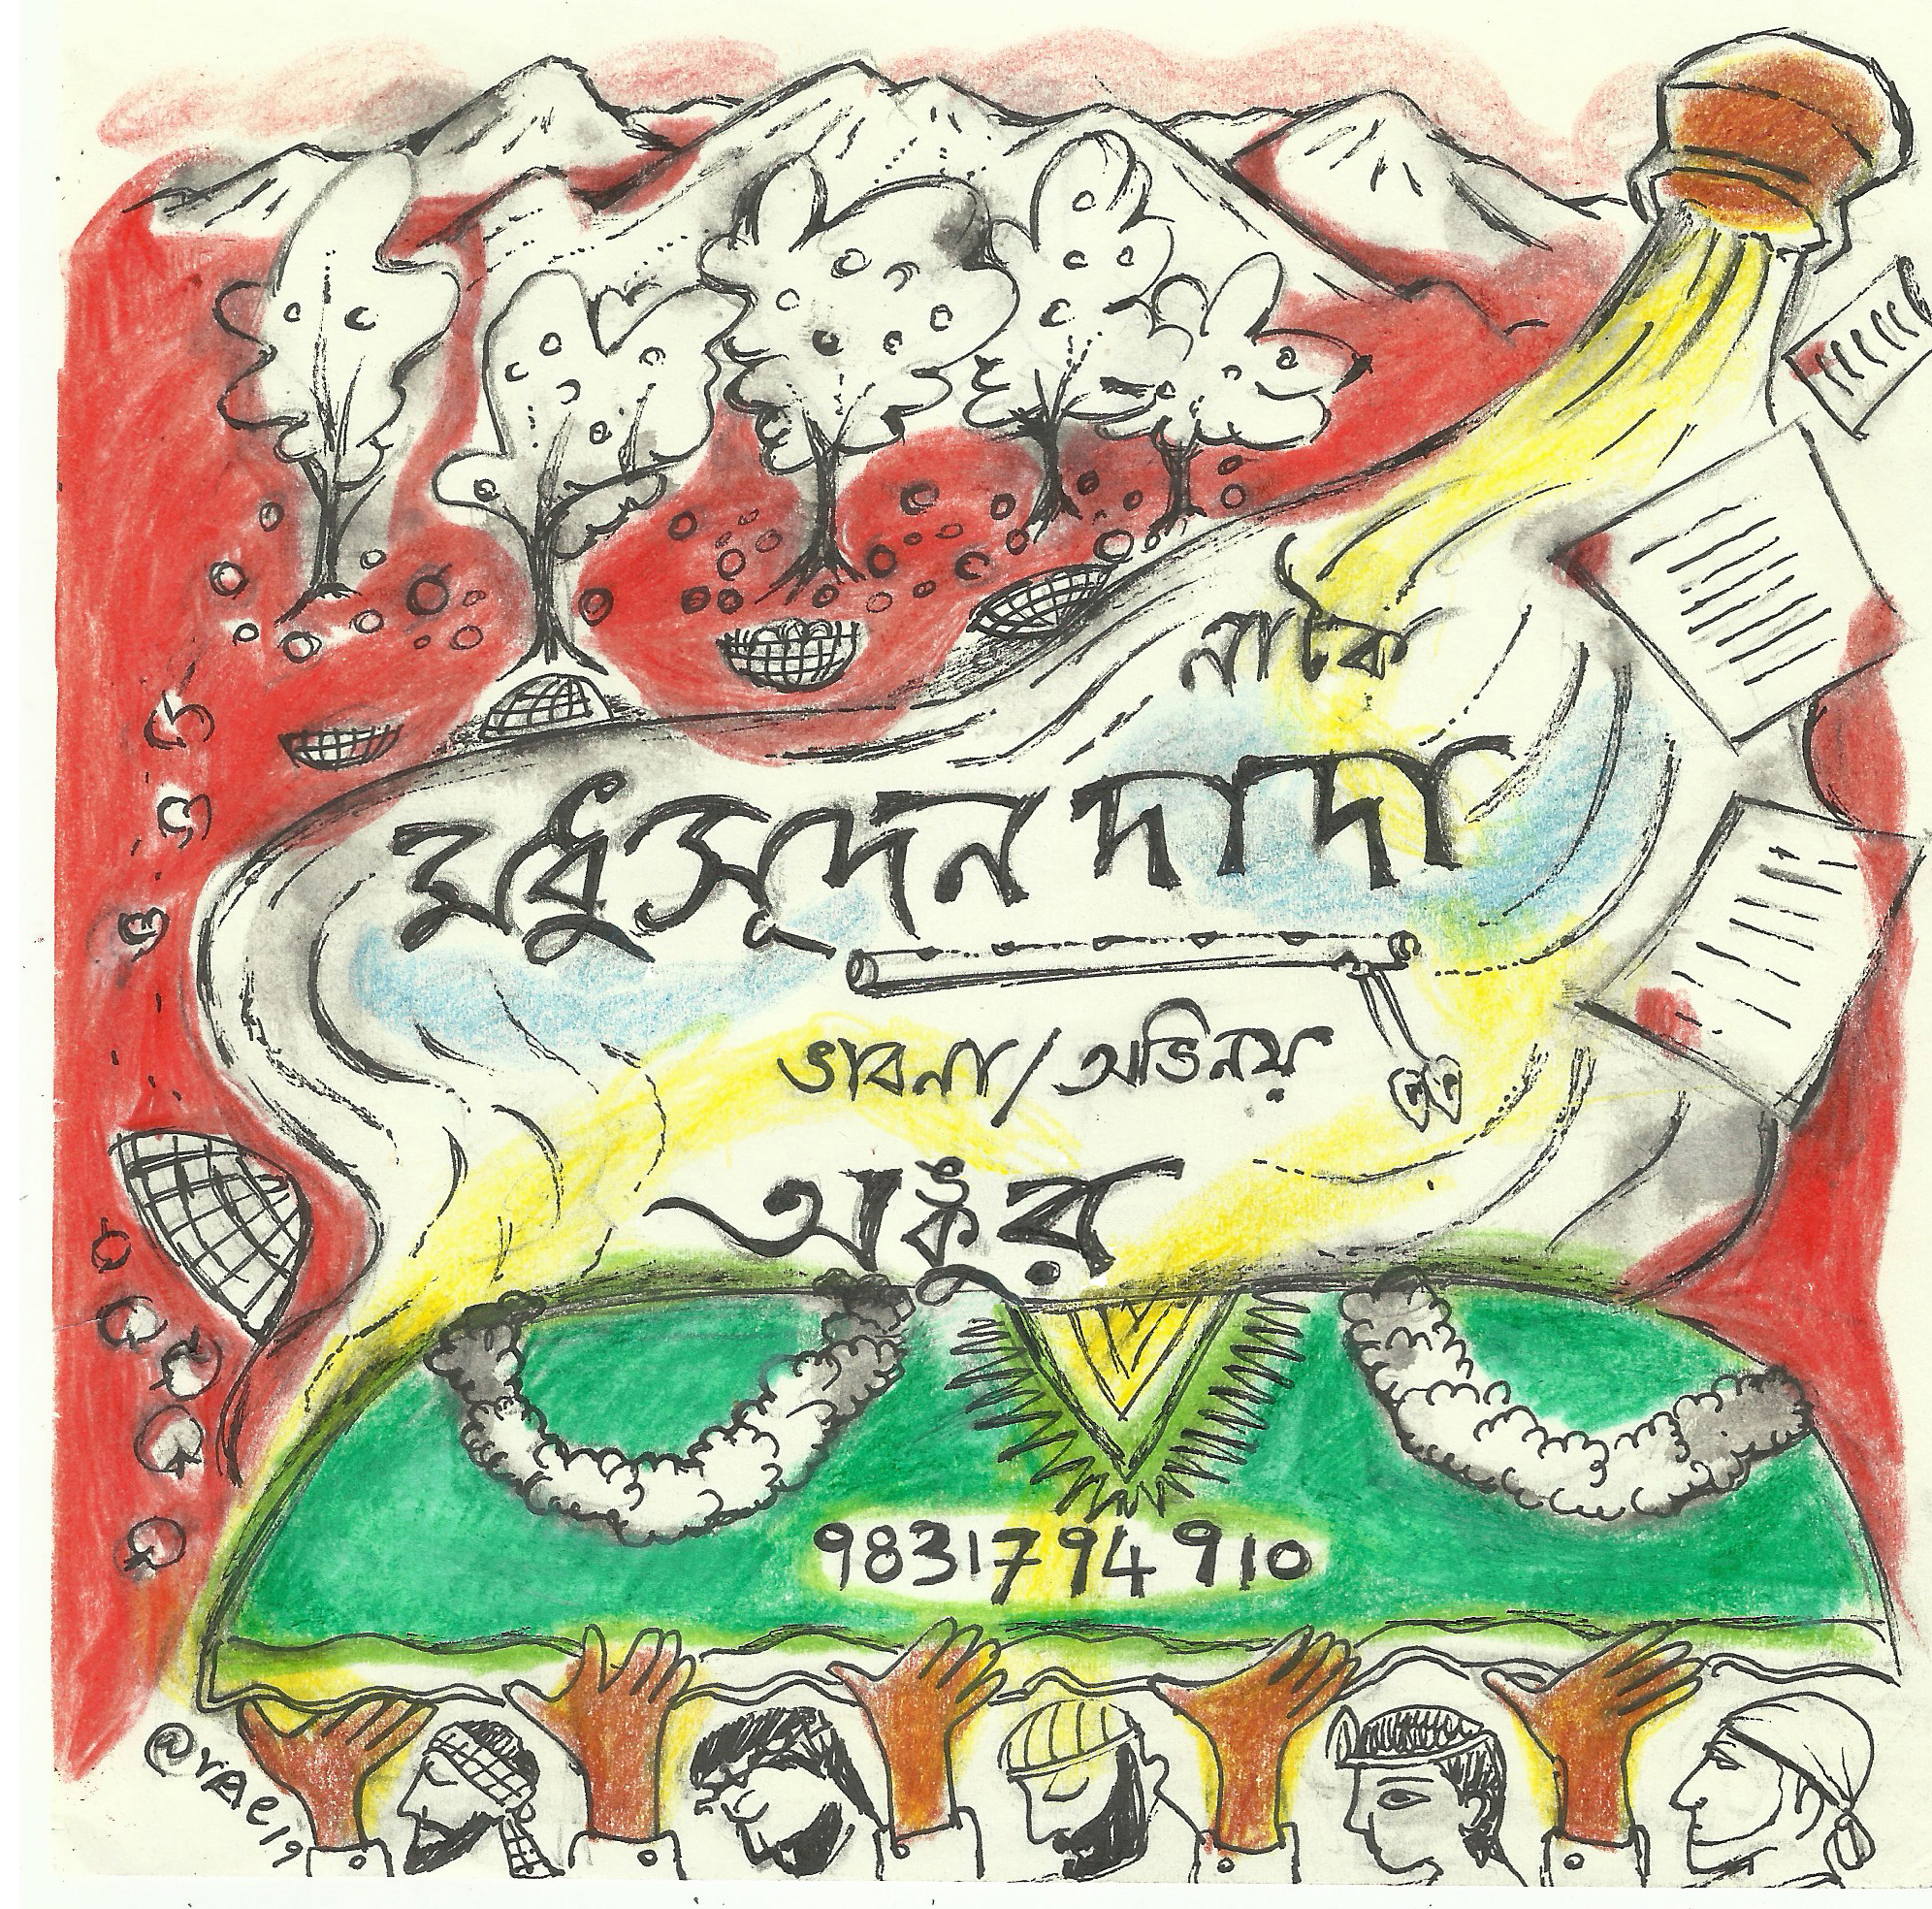 নাটক
মধুসূদন দাদা
ভাবনা/অভিনয়
অঙ্কুর
9831794910
@rAe19